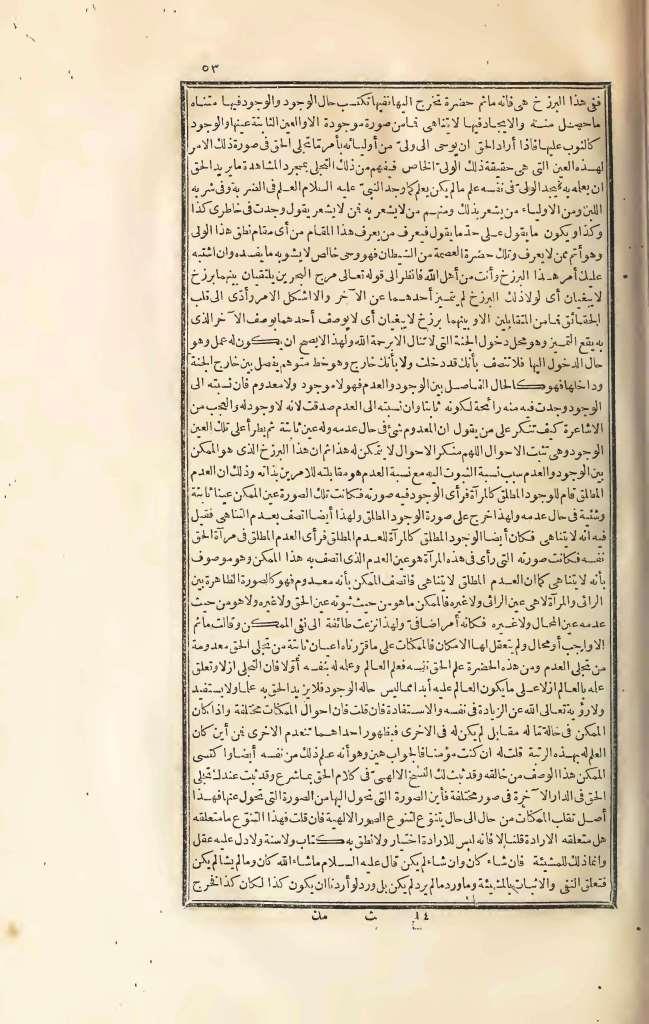 ٥٣
ففى هذا البرزخ هى فانه ماثم حضرة تخرج اليها ففيها تكتسب حال الوجود والوجود فيها متناه
ما حصل منه والايجاد فيها لا يتناهى فما من صورة موجودة الا والعين الثابتة عينها والوجود
كالثوب عليها فاذا أراد الحق ان يوحى الى ولىّ من أوليائه بأمر ما تجلى الحق فى صورة ذلك الامر
لهذه العين التى هى حقيقة ذلك الولىّ الخاص فيفهم من ذلك التجلى بمجرد المشاهدة ما يريد الحق
ان يعلمه به فيجد الولىّ فى نفسه علم مالم يكن يعلم كما وجد النبىّ عليه السلام العلم فى الضربه وفى شربه
اللبن ومن الاولياء من يشعر بذلك ومنهم من لا يشعر به فمن لا يشعر يقول وجدت فى خاطرى كذا
وكذا ويكون ما يقول على حدّ ما يقول فيعرف من يعرف هذا المقام من أى مقام نطق هذا الولى
وهو أتم ممن لا يعرف وتلك حضرة العصمة من الشيطان فهو وحى خالص لا يشوبه ما يفسده وان اشتبه
عليك أمر هذا البرزخ وأنت من أهل الله فانظر الى قوله تعالى مرج البحرين يلتقيان بينهما برزخ
لا يبغيان أى لولا ذلك البرزخ لم يتميز أحدهما عن الآخر ولاشكل الامر وأدّى الى قلب
الحقائق فما من المتقابلين الا وبينهما برزخ لا يبغيان أى لا يوصف أحدهما بوصف الآخر الذى
به يقع التميز وهو محل دخول الجنة التى لا تنال الا برحمة الله ولهذا لا يصح ان يكون له عمل وهو
حال الدخول اليها فلا تتصف بأنك قد دخلت ولا بأنك خارج وهو خط متوهم يفصل بين خارج الجنة
وداخلها فهو كالحال الفاصل بين الوجود والعدم فهو لا موجود ولا معدوم فان نسبته الى
الوجود وجدت فيه منه رائحة لكونه ثابتا وان نسبته الى العدم صدقت لانه لا وجود له والعجب من
الاشاعرة كيف تنكر على من يقول ان المعدوم شئ فى حال عدمه وله عين ثابتة ثم يطرأ على تلك العين
الوجود وهى تثبت الاحوال اللهم منكر الاحوال لا يتمكن له هذا ثم ان هذا البرزخ الذى هو الممكن
بين الوجود والعدم سبب نسبة الثبوت اليه مع نسبة العدم هو مقابلته للامرين بذاته وذلك ان العدم
المطلق قام للوجود المطلق كالمرآة فرأى الوجود فيه صورته فكانت تلك الصورة عين الممكن عينا ثابتة
وشئية فى حال عدمه ولهذا خرج على صورة الوجود المطلق ولهذا أيضا اتصف بعدم التناهى فقيل
فيه انه لا يتناهى فكان أيضا الوجود المطلق كالمرآة للعدم المطلق فرأى العدم المطلق فى مرآة الحق
نفسه فكانت صورته التى رأى فى هذه المرآة هو عين العدم الذى اتصف به هذا الممكن وهو موصوف
بأنه لا يتناهى كما ان العدم المطلق لا يتناهى فاتصف الممكن بأنه معدوم فهو كالصورة الظاهرة بين
الرائى والمرآة لا هى عين الرائى ولا غيره فالممكن ما هو من حيث ثبوته عين الحق ولا غيره ولا هو من حيث
عدمه عين المحال ولا غيره فكانه أمر اضافىّ ولهذا نزعت طائفة الى نفى الممكن وقالت ماثم
الا واجب أو محال ولم يتعقل لها الامكان فالممكنات على ما قررناه اعيان ثابتة من تجلى الحق معدومة
من تجلى العدم ومن هذه الحضرة علم الحق نفسه فعلم العالم وعلمه له بنفسه أزلا فان التجلى ازلا وتعلق
علمه بالعالم ازلا على ما يكون العالم عليه أبدا مما ليس حاله الوجود فلا يزيد الحق به علما ولا يستفيد
ولا رؤية تعالى الله عن الزيادة فى نفسه والاستفادة فان قلت فان احوال الممكنات مختلفة واذا كان
الممكن فى حالة تما له مقابل لم يكن له فى الاخرى فبظهور احداهما تنعدم الاخرى فمن أين كان
العلم له بهذه الرتبة قلت له ان كنت مؤمنا فالجواب هين وهو أنه علم ذلك من نفسه أيضا واكتسى
الممكن هذا الوصف من خالقه وقد ثبت لك النسخ الالهىّ فى كلام الحق بما شرع وقد ثبت عندك تجلى
الحق فى الدار الآخرة فى صور مختلفة فأين الصورة التى تحول اليها من الصورة التى تحول عنها فهذا
أصل تقلب الممكنات من حال الى حال يتنوّع لتنوّع الصور الالهية فان قلت فهذا التنوّع ما متعلقه
هل متعلقه الارادة قلنا لا فانه ليس للارادة اختيار ولا نطق به كتاب ولا سنة ولا دل عليه عقل
وانما ذلك للمشيئة فان شاء كان وان شاء لم يكن قال عليه السلام ما شاء الله كان وما لم يشأ لم يكن
فتعلق النفى والاثبات بالمشيئة وما ورد ما لم يرد لم يكن بل ورد لو أردنا ان يكون كذا لكان كذا فخرج
١٤ ث مك